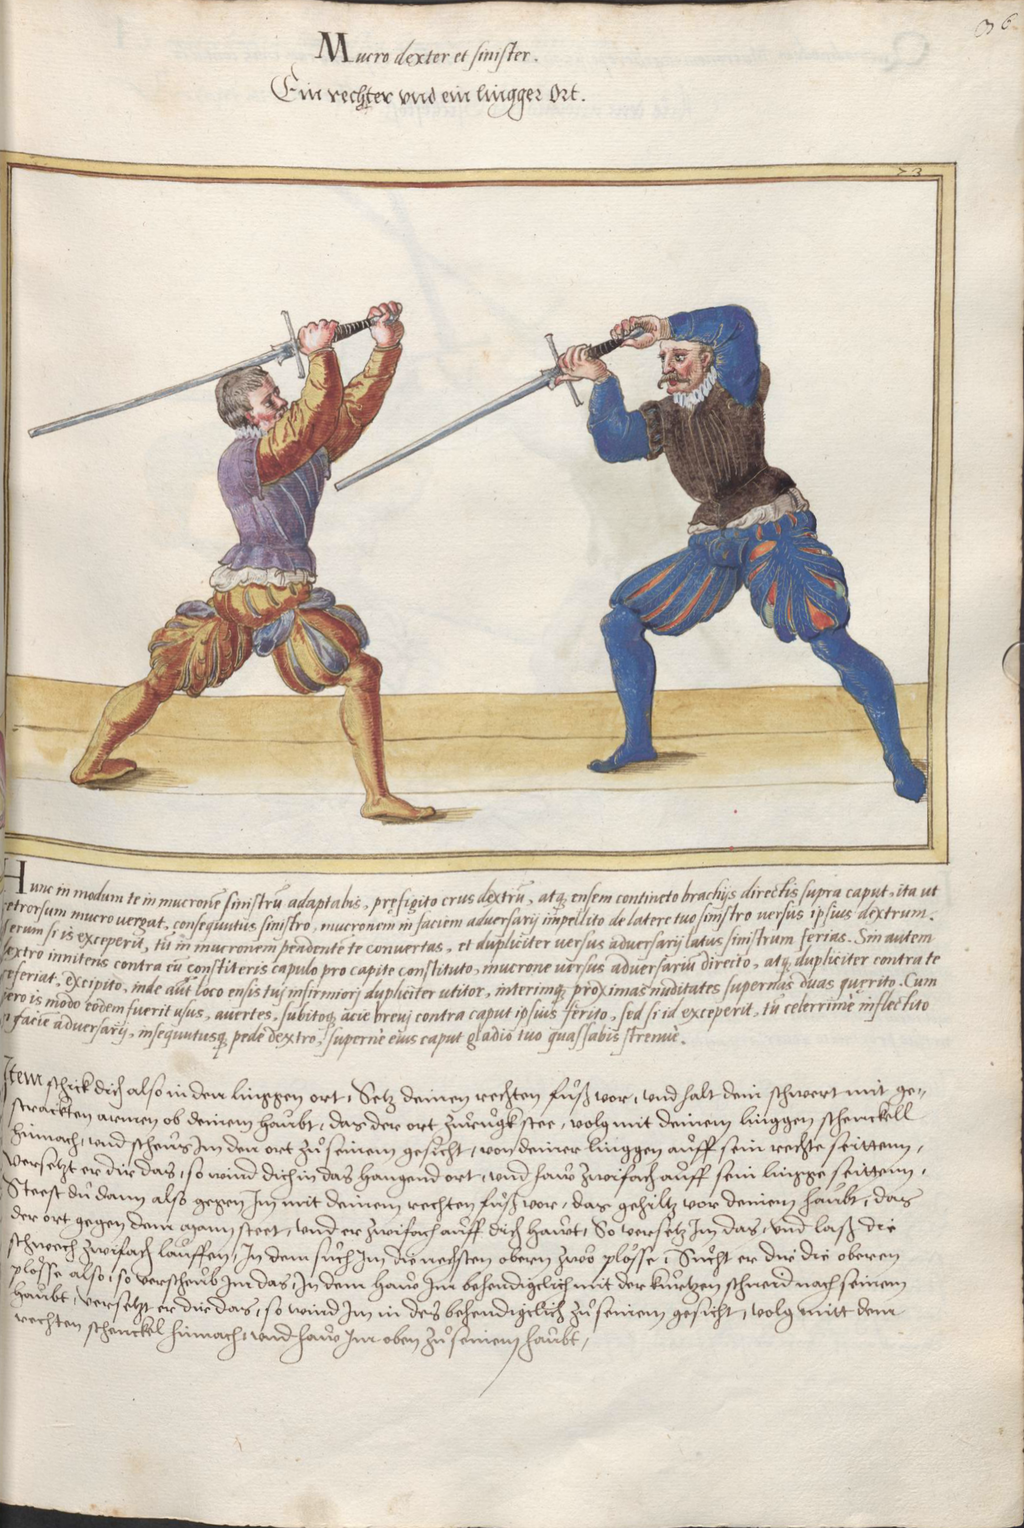 36
Mucro dexter et sinister.
Ein rechter vnd ein lingger Ort.
23
Hunc in modum te in mucronē sinistrū adaptabis, pręfigito crus dextrū, atq, ensem contineto brachijs directis supra caput, ita ut
retrorsum mucro vergat, consequutus sinistro, mucronem in faciem adversarij impellito de latere tuo sinistro versus ipsius dextrum.
verum si is exceperit, tū in mucronem pendente te convertas, et dupliciter versus adversarij latus sinistrum ferias. Sin autem
dextro innitens contra eū constiteris capulo pro capite constituto, mucrone versus adversariū directo, atq, dupliciter contra te
referiat, excipito, inde aūt loco ensis tui infirmiori dupliciter utitor, interimq, proximas nuditates supernas duas quęrito. Cum
vero is modo eodem fuerit usus, avertes, subitoq, acie brevi contra caput ipsius ferito, sed si id exceperit, tū celerrimè inflectito
facie adversarij, insequutusq, pede dextro, supernè eius caput gladio tuo quassabis strenuè.
Item schick dich also in den linggen ort, Setz deinen rechten fuͦß vor, vnd halt dein schwert mit ge-
strackten armen ob deinem haubt, das der ort zuruͦgk stee, volg mit deinem linggen schenckell
hinnach, vnd scheuͦs Im den ort zuͦ seinem gesicht, von deiner linggen auff sein rechte seittenn,
versetzt er dir das, so wind dich in das hangend ort, vnd haw zwifach auff sein lingge seittenn,
Steest du dann also gegen Im mit deinem rechten fuͦß vor, das gehiltz vor deinem haubt, das
der ort gegen dem mann steet, vnd er zwifach auff dich hawt, So versetz Im das, vnd laß die
schwech zwifach lauffen, In dem such Im die nechsten obern zwo plösse, Sucht er dir die oberen
plösse also, so verscheub Im das, In dem haw Im behendigclich mit der kurtzen schneid nach seinem
haubt, versetzt er dir das, so wind Im in des behendigclich zuͦ seinem gesicht, volg mitt dem
rechten schenckel hinnach, vnd haw Im oben zuͦ seinem haubt,